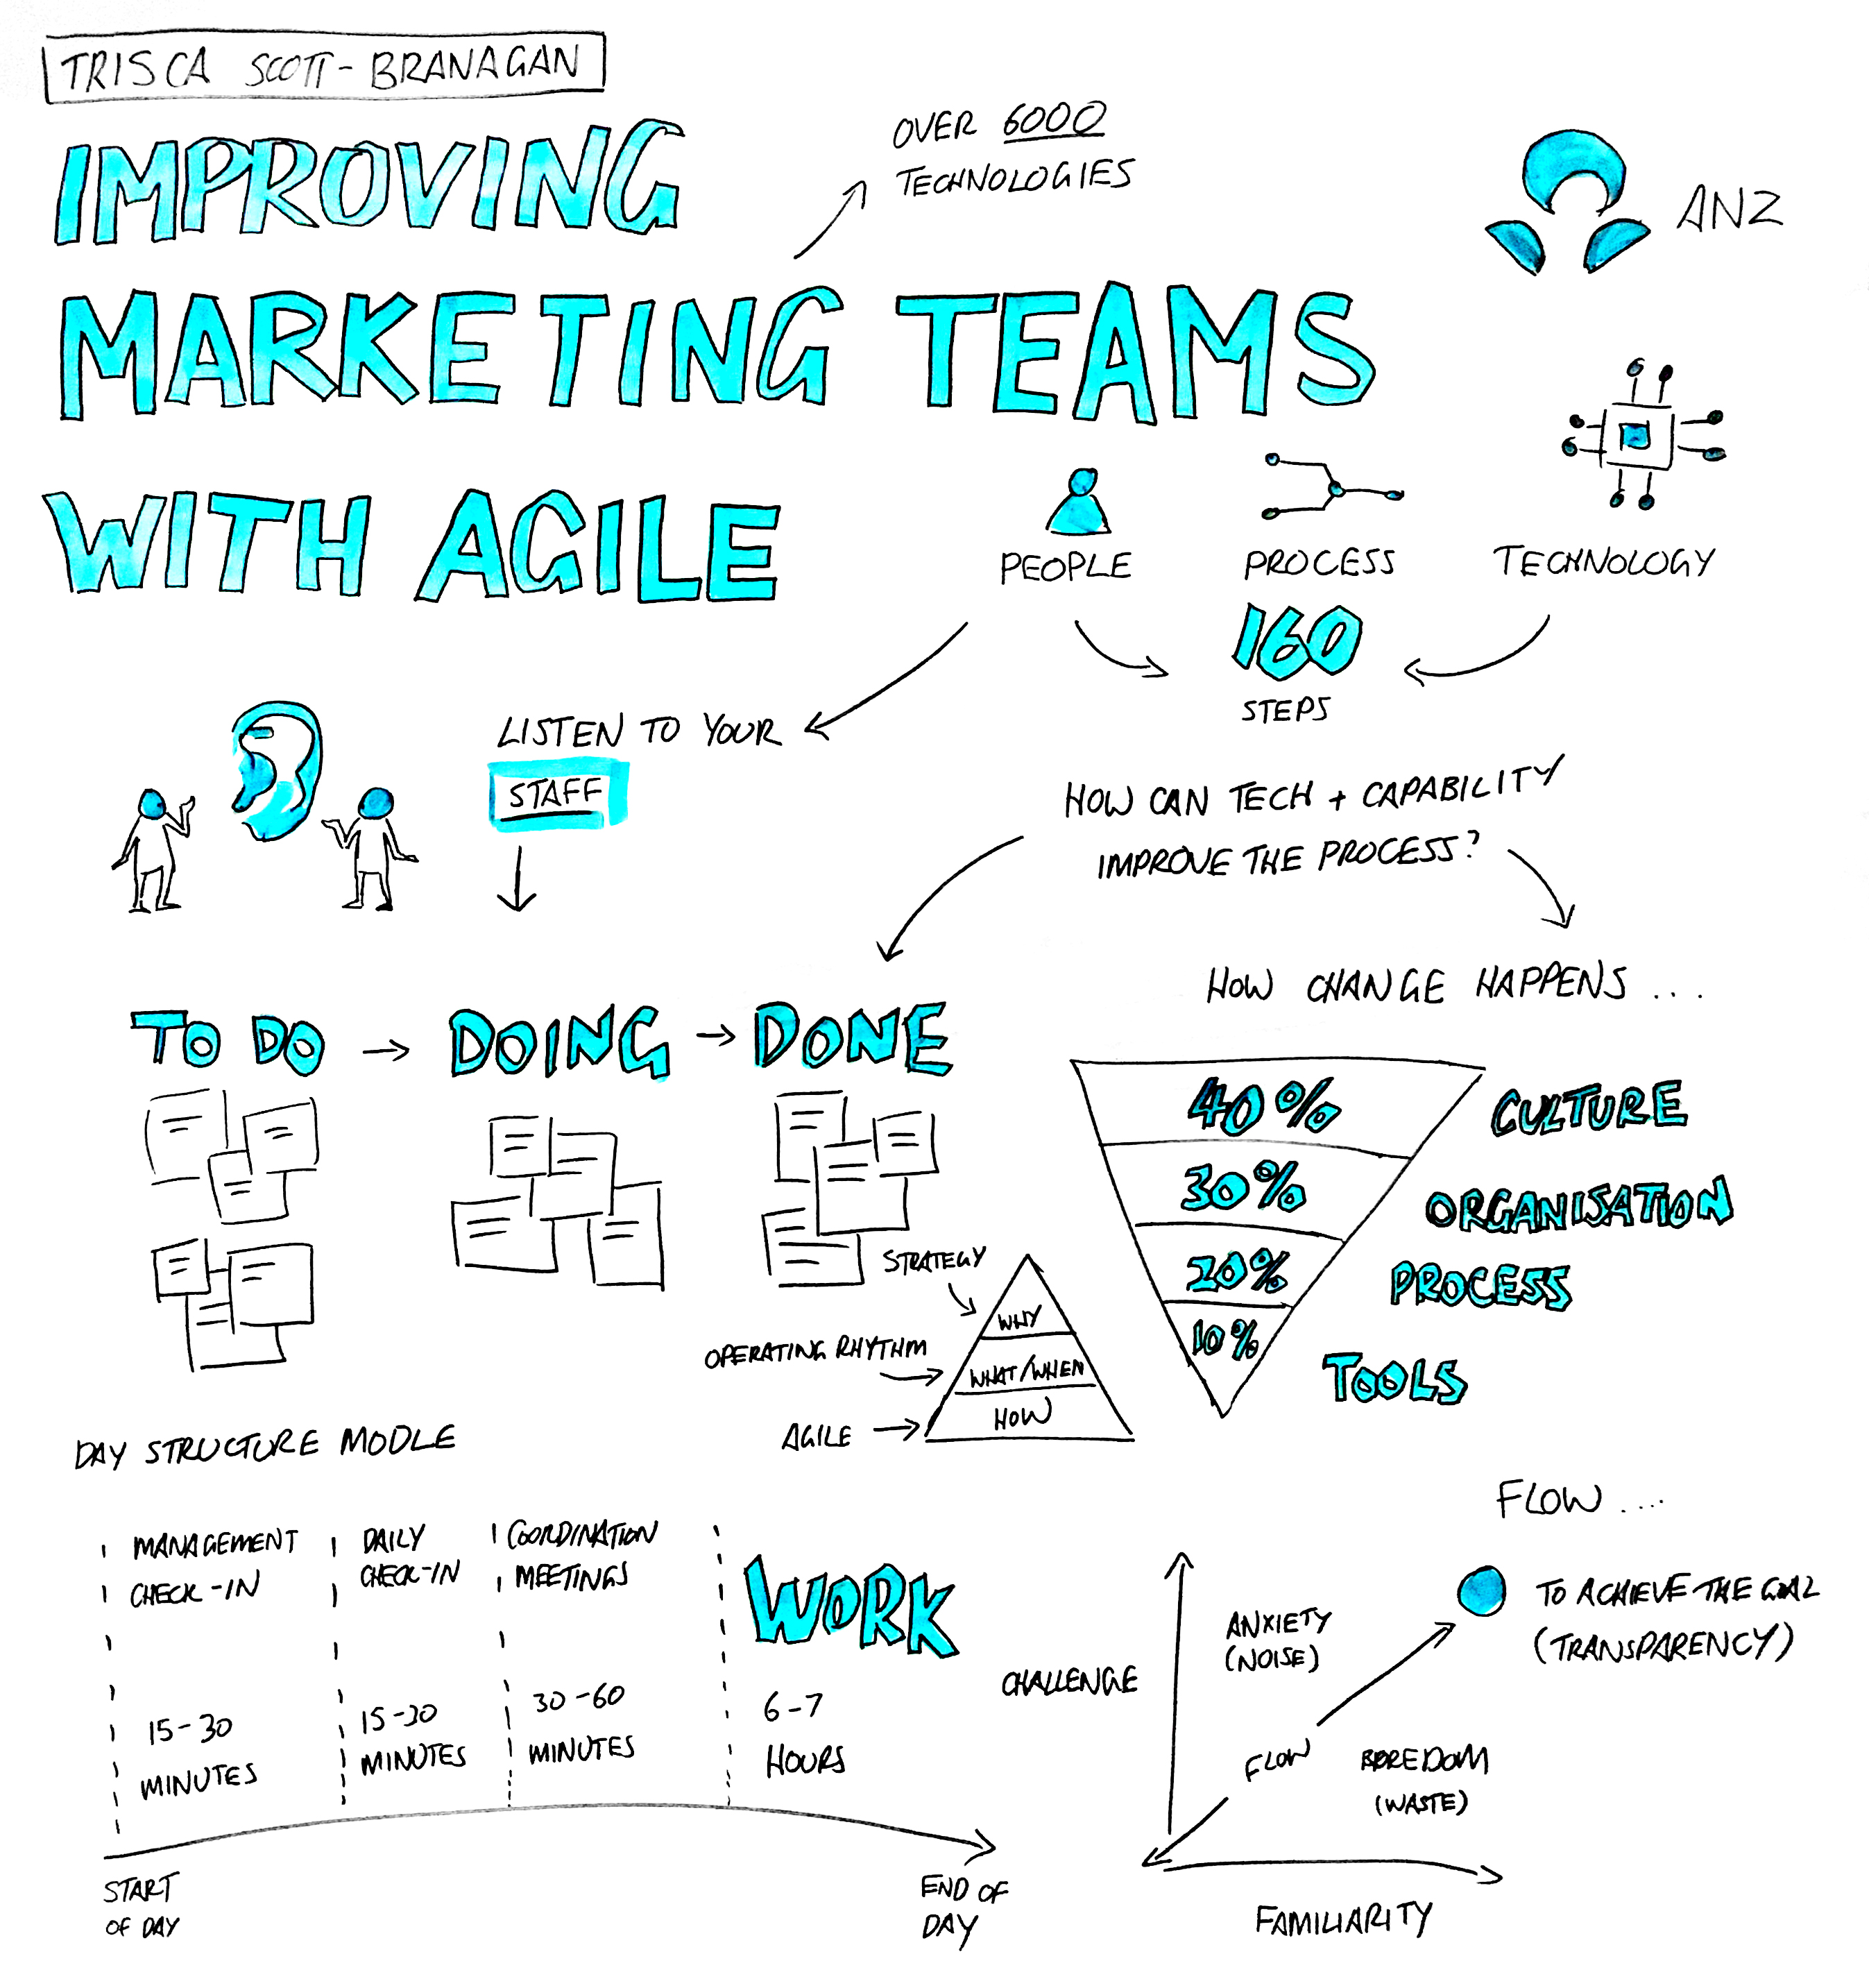 TRISCA SCOTT-BRANAGAN
IMPROVING
MARKETING TEAMS
WITH AGILE
OVER 6000
TECHNOLOGIES
ANZ
PEOPLE
PROCESS
TECHNOLOGY
160
STEPS
LISTEN TO YOUR
STAFF
HOW CAN TECH + CAPABILITY
IMPROVE THE PROCESS?
TO DO → DOING → DONE
HOW CHANGE HAPPENS ...
40% CULTURE
30% ORGANISATION
20% PROCESS
10% TOOLS
STRATEGY
WHY
OPERATING RHYTHM
WHAT/WHEN
AGILE
HOW
DAY STRUCTURE MODLE
MANAGEMENT
CHECK-IN
15-30
MINUTES
DAILY
CHECK-IN
15-30
MINUTES
COORDINATION
MEETINGS
30-60
MINUTES
WORK
6-7
HOURS
START
OF DAY
END OF
DAY
FLOW ....
TO ACHIEVE THE GOAL
(TRANSPARENCY)
ANXIETY
(NOISE)
CHALLENGE
FLOW
BOREDOM
(WASTE)
FAMILIARITY